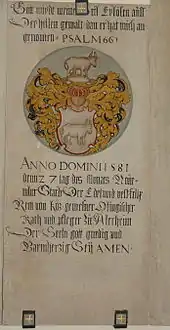 Gott wirdt meine seel Erlösen auß
Der hellen gewalt dan er hat mich an
genomen · PSALM 66
ANNO DOMINI 1581
denn 27 tag des Monats Novem
ber Starb Der Edel und vest
Rem von Köz gewesner Ötingischer
Rath und pfleger Zu Alerheim
Der Seeln gott genedig und
Barmherzig Sey AMEN ·